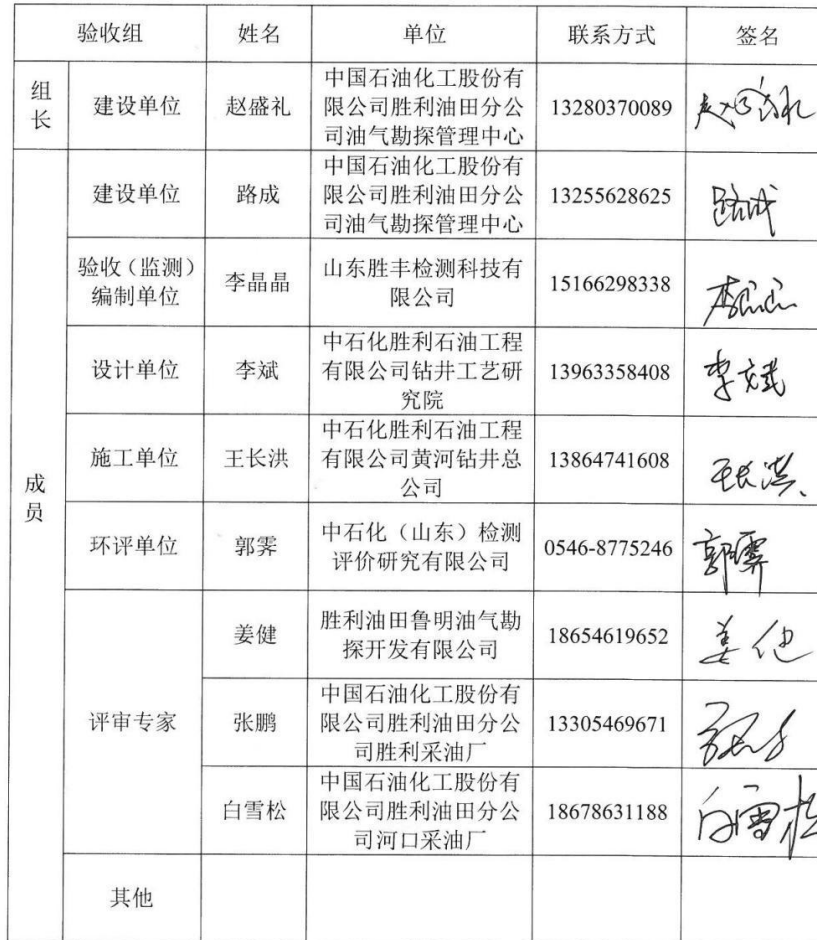 验收组 姓名 单位 联系方式 签名
组长 建设单位 赵盛礼 中国石油化工股份有限公司胜利油田分公司油气勘探管理中心 13280370089 赵盛礼
成员 建设单位 路成 中国石油化工股份有限公司胜利油田分公司油气勘探管理中心 13255628625 路成
验收（监测）编制单位 李晶晶 山东胜丰检测科技有限公司 15166298338 李晶晶
设计单位 李斌 中石化胜利石油工程有限公司钻井工艺研究院 13963358408 李斌
施工单位 王长洪 中石化胜利石油工程有限公司黄河钻井总公司 13864741608 王长洪
环评单位 郭霁 中石化（山东）检测评价研究有限公司 0546-8775246 郭霁
评审专家 姜健 胜利油田鲁明油气勘探开发有限公司 18654619652 姜健
张鹏 中国石油化工股份有限公司胜利油田分公司胜利采油厂 13305469671
白雪松 中国石油化工股份有限公司胜利油田分公司河口采油厂 18678631188 白雪松
其他